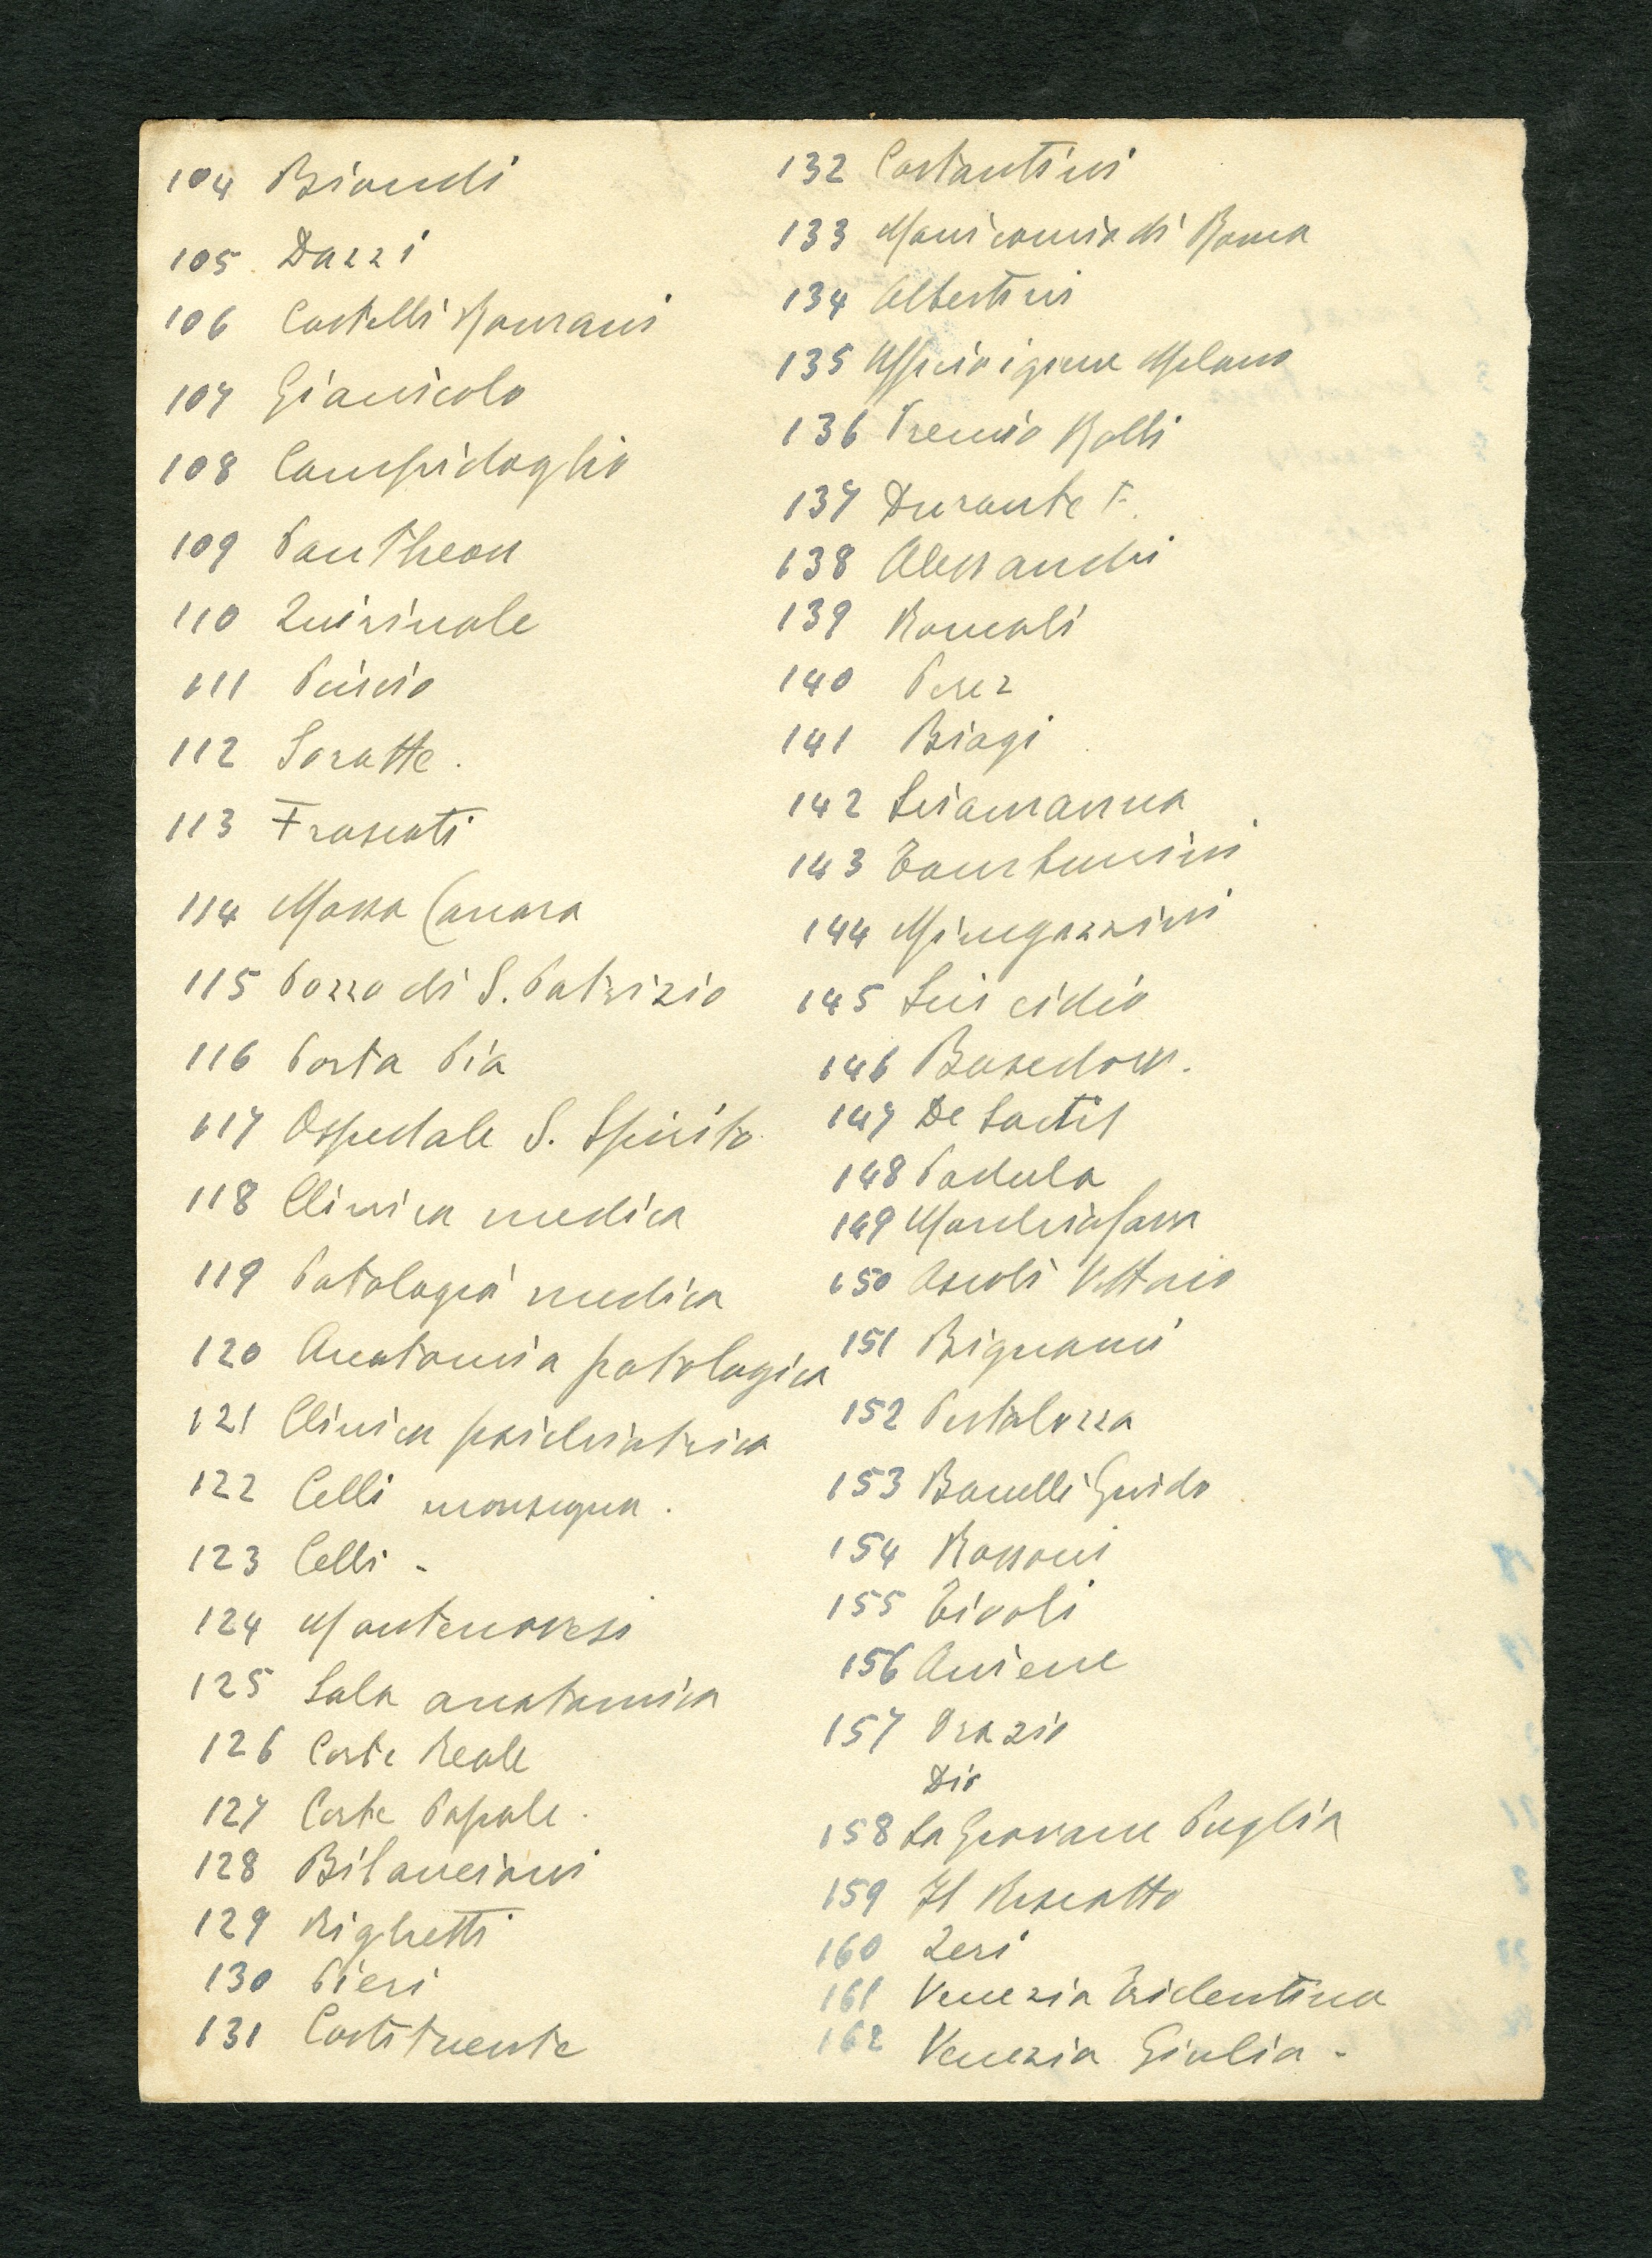 104 Biondi
105. Dazzi
106 Castelli Romani
107 Gianicolo
108 Campidoglio
109 Pantheon
110 Quirinale
111 Pincio
112 Soratte.
113 Frascati
114 Massa Carrara
115 Pozzo di S. Patrizio
116 Porta Pia
117 Ospedale S. Spirito
118 Clinica medica
119 Patologia medica
120 Anatomia patologica
121 Clinica psichiatrica
122 Celli
123 Celli -
124 Montenovesi
125 Sala anatomica
126 Corte Reale
127 Corte Papale.
128 Bilancioni
129 Righetti
130 Pieri
131 Costituente
132 Costantini
133 Manicomio di Roma
134 Albertini
135 Ufficio igiene Milano
136 Premio Rolli
137 Durante F.
138 Alessandri
139 Roncali
140 Perez
141 Biagi
142 Sciamanna
143 Tamburini
144 Mingazzini
145 Suicidio
146 Basedow.
147 De Sactis
148 Padula
149 Marchiafava
150 Ascoli Vittorio
151 Bignami
152 Pestalozza
153 Baccelli Guido
154 Rossoni
155 Tivoli
156 Aniene
157 Orazio
Dio
158 La Giovane Puglia
159 Il Riscatto
160 Zeri
161 Venezia Tridentina
162 Venezia Giulia -